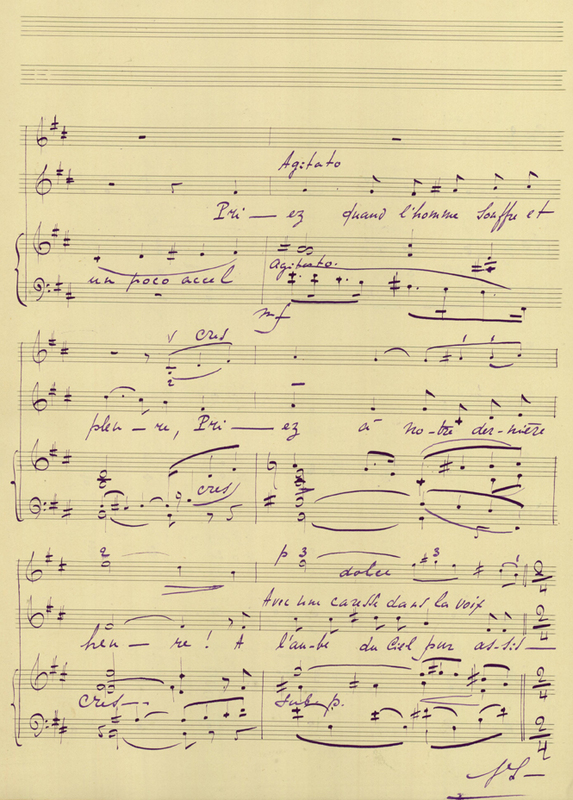 Agitato
Pri — ez quand l'homme souffre et
un poco accel
Agitato.
mf
cres
2
pleu — re, Pri — ez à no-tre der-nière
cres
2
p 3
3
dolce
1
2/4
Avec une caresse dans la voix
heu — re ! A l'au-be du Ciel pur as-sis —
2/4
cres --
sub. p.
2/4
2/4